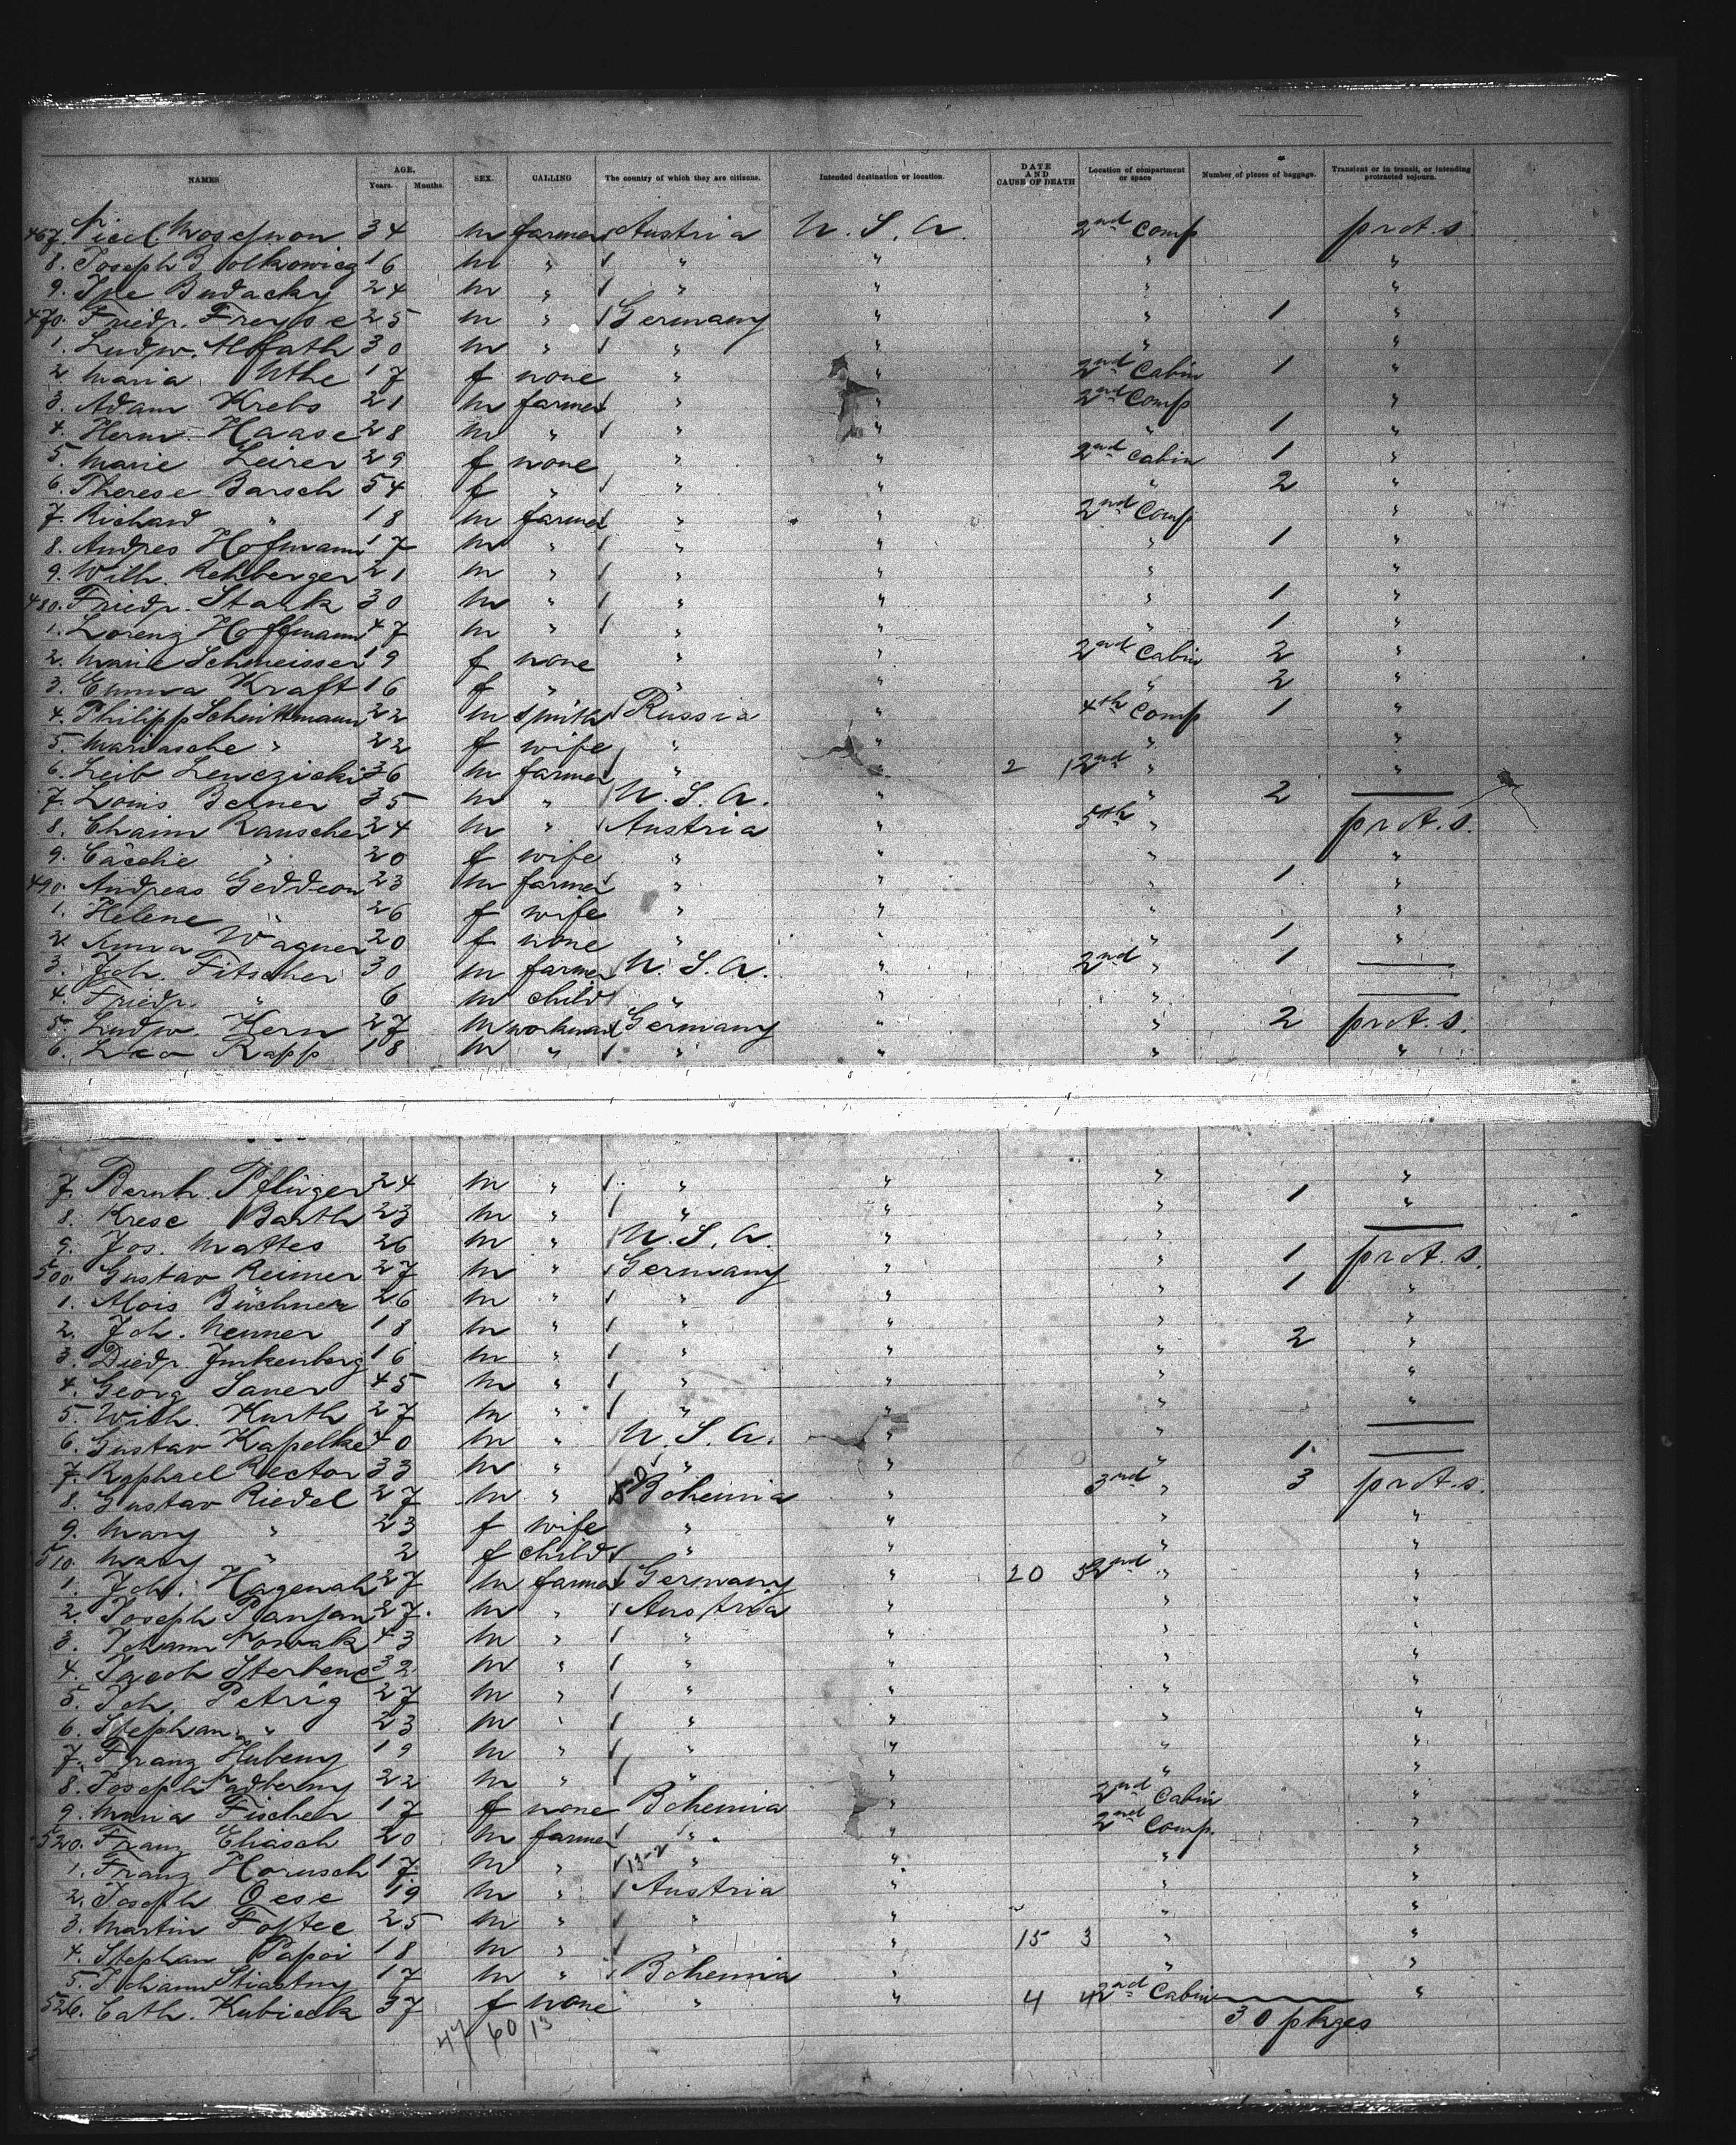 NAMES AGE. Years. Months. SEX. CALLING The country of which they are citizens. Intended destination or location. DATE AND CAUSE OF DEATH Location of compartment or space Number of pieces of baggage. Transient or in transit, or intending protracted sojourn.
467. 34 m farmer Austria U. S. A. 2nd Comp prot. s.
8. Joseph 16 m " " " " "
9. Budacky 24 m " " " " "
470. Friedr. Freyse 25 m " Germany " " 1 "
1. Ludw. 30 m " " " " "
2. Maria Uthe 17 f none " " 2nd Cabin 1 "
3. Adam Krebs 21 m farmer " " 2nd Comp "
4. Herm. Haase 28 m " " " " 1 "
5. Marie Leirer 29 f none " " 2nd Cabin 1 "
6. Therese Barsch 54 f " " " " 2 "
7. Richard " 18 m farmer " " 2nd Comp "
8. Andres Hofmann 17 m " " " " 1 "
9. Wilh. Rehberger 21 m " " " " "
480. Friedr. Stark 30 m " " " " 1 "
1. Lorenz Hoffmann 47 m " " " " 1 "
2. Marie Schmeisser 19 f none " " 2nd Cabin 2 "
3. Emma Kraft 16 f " " " " 2 "
4. Philipp Schnittmann 22 m smith Russia " 4th Comp 1 "
5. Mariasche " 22 f wife " " " "
6. Leib Lenczicki 36 m farmer " " 2 1 2nd " "
7. Louis 35 m " U. S. A. " " 2 —
8. Chaim Rauscher 24 m " Austria " 5th " prot. s.
9. Cäcilie " 20 f wife " " " "
490. Andreas Geddeon 23 m farmer " " " 1 "
1. Helene " 26 f wife " " " "
2. Anna Wagner 20 f none " " " 1 "
3. Joh. Fitscher 30 m farmer U. S. A. " 2nd " 1 —
4. Friedr. " 6 m child " " " —
5. Ludw. Kern 27 m workman Germany " " 2 prot. s.
6. Leo Rapp 18 m " " " " "
7. Bernh. Pflinger 24 m " " " " 1 "
8. Krese Barth 23 m " " " " "
9. Jos. Mattes 26 m " U. S. A. " " —
500. Gustav Reimer 27 m " Germany " " 1 prot. s.
1. Alois Büchner 26 m " " " " 1 "
2. Joh. Nenner 18 m " " " " "
3. Diedr. Junkenberg 16 m " " " " 2 "
4. Georg Sauer 45 m " " " " "
5. Wilh. Kurth 27 m " " " " "
6. Gustav Kapelke 40 m " U. S. A. " " —
7. Raphael Rector 33 m " " " " 1 —
8. Gustav Riedel 27 m " Bohemia " 3rd " 3 prot. s.
9. Mary " 23 f wife " " " "
510. Mary " 2 f child " " " "
1. Joh. Hagenah 27 m farmer Germany " 20 3 2nd " "
2. Joseph Panjan 27 m " Austria " " "
3. Johann Nowak 43 m " " " " "
4. Jacob Sterbenc 32 m " " " " "
5. Joh. Petrig 27 m " " " " "
6. Stephan " 23 m " " " " "
7. Franz Hubeny 19 m " " " " "
8. Joseph Nadherny 22 m " " " " "
9. Maria Fischer 17 f none Bohemia " 2nd Cabin "
520. Franz Eliasch 20 m farmer " " 2nd Comp. "
1. Franz Horusch 17 m " 13-2 " " " "
2. Joseph Oese 19 m " Austria " " "
3. Martin 25 m " " " " "
4. Stephan Papoi 18 m " " " 15 3 " "
5. Johann Stiastny 17 m " Bohemia " " "
526. Cath. Kubicek 37 f none " " 4 4 2nd Cabin "
47 60 13 30 pkges